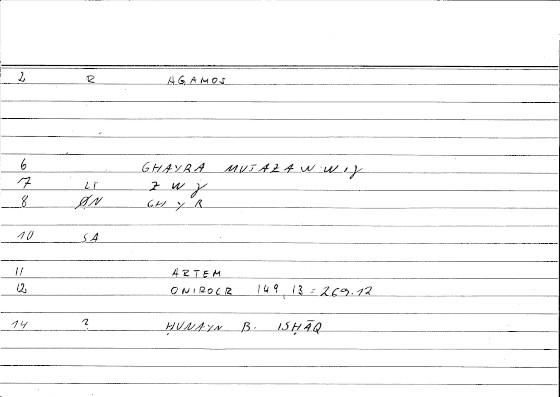 2 R AGAMOS
6 GHAYRA MUTAZAWWIǦ
7 LT Z W Ǧ
8 ØN GH Y R
10 SA
11 ARTEM
12 ONIROCR 149, 13 = 269.12
14 ? ḤUNAYN B. ISḤĀQ